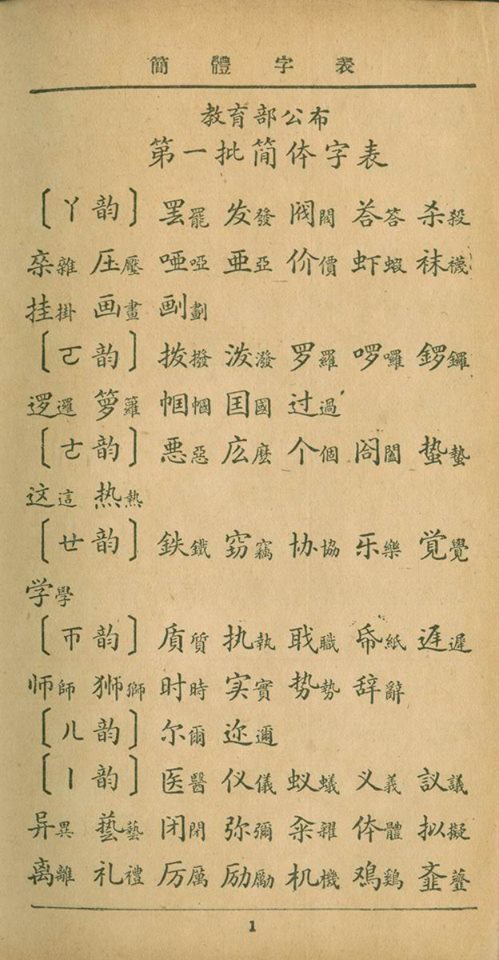 簡體字表
教育部公布
第一批简体字表
〔ㄚ韵〕罢罷 发發 阀閥 荅答 杀殺
杂雜 压壓 唖啞 亜亞 价價 虾蝦 袜襪
挂掛 画畫 劃
〔ㄛ韵〕拨撥 泼潑 罗羅 啰囉 鑼
逻邏 箩籮 帼幗 国國 过過
〔ㄜ韵〕悪惡 庅麼 个個 阁閣 蛰蟄
这這 热熱
〔ㄝ韵〕鉄鐵 窃竊 协協 乐樂 覚覺
学學
〔ㄭ韵〕质質 执執 职職 帋紙 迟遲
师師 狮獅 时時 实實 势勢 辞辭
〔ㄦ韵〕尔爾 迩邇
〔ㄧ韵〕医醫 仪儀 蚁蟻 义義 议議
异異 藝 闭閉 弥彌 体體 拟擬
离離 礼禮 厉厲 励勵 机機 鸡鷄
1